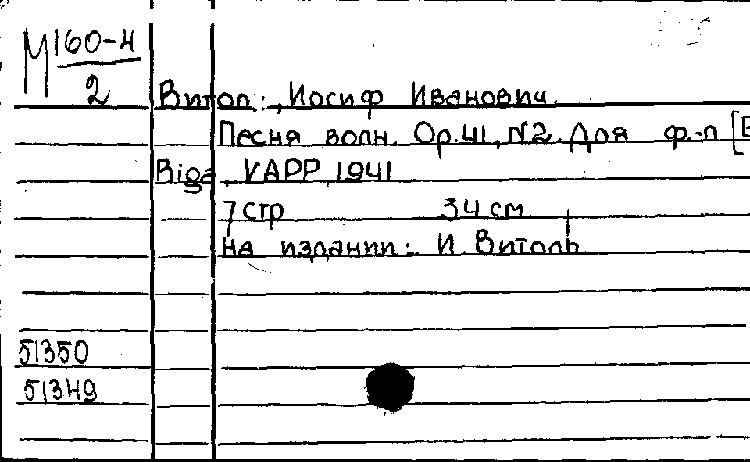 М160-4
2
Витол:, Иосиф Иванович
Песня волн. Op.41, N2. Для ф.-п [
Riga, VAPP, 1941
7 стр 34 см
На издании: И. Витоль
51350
51349